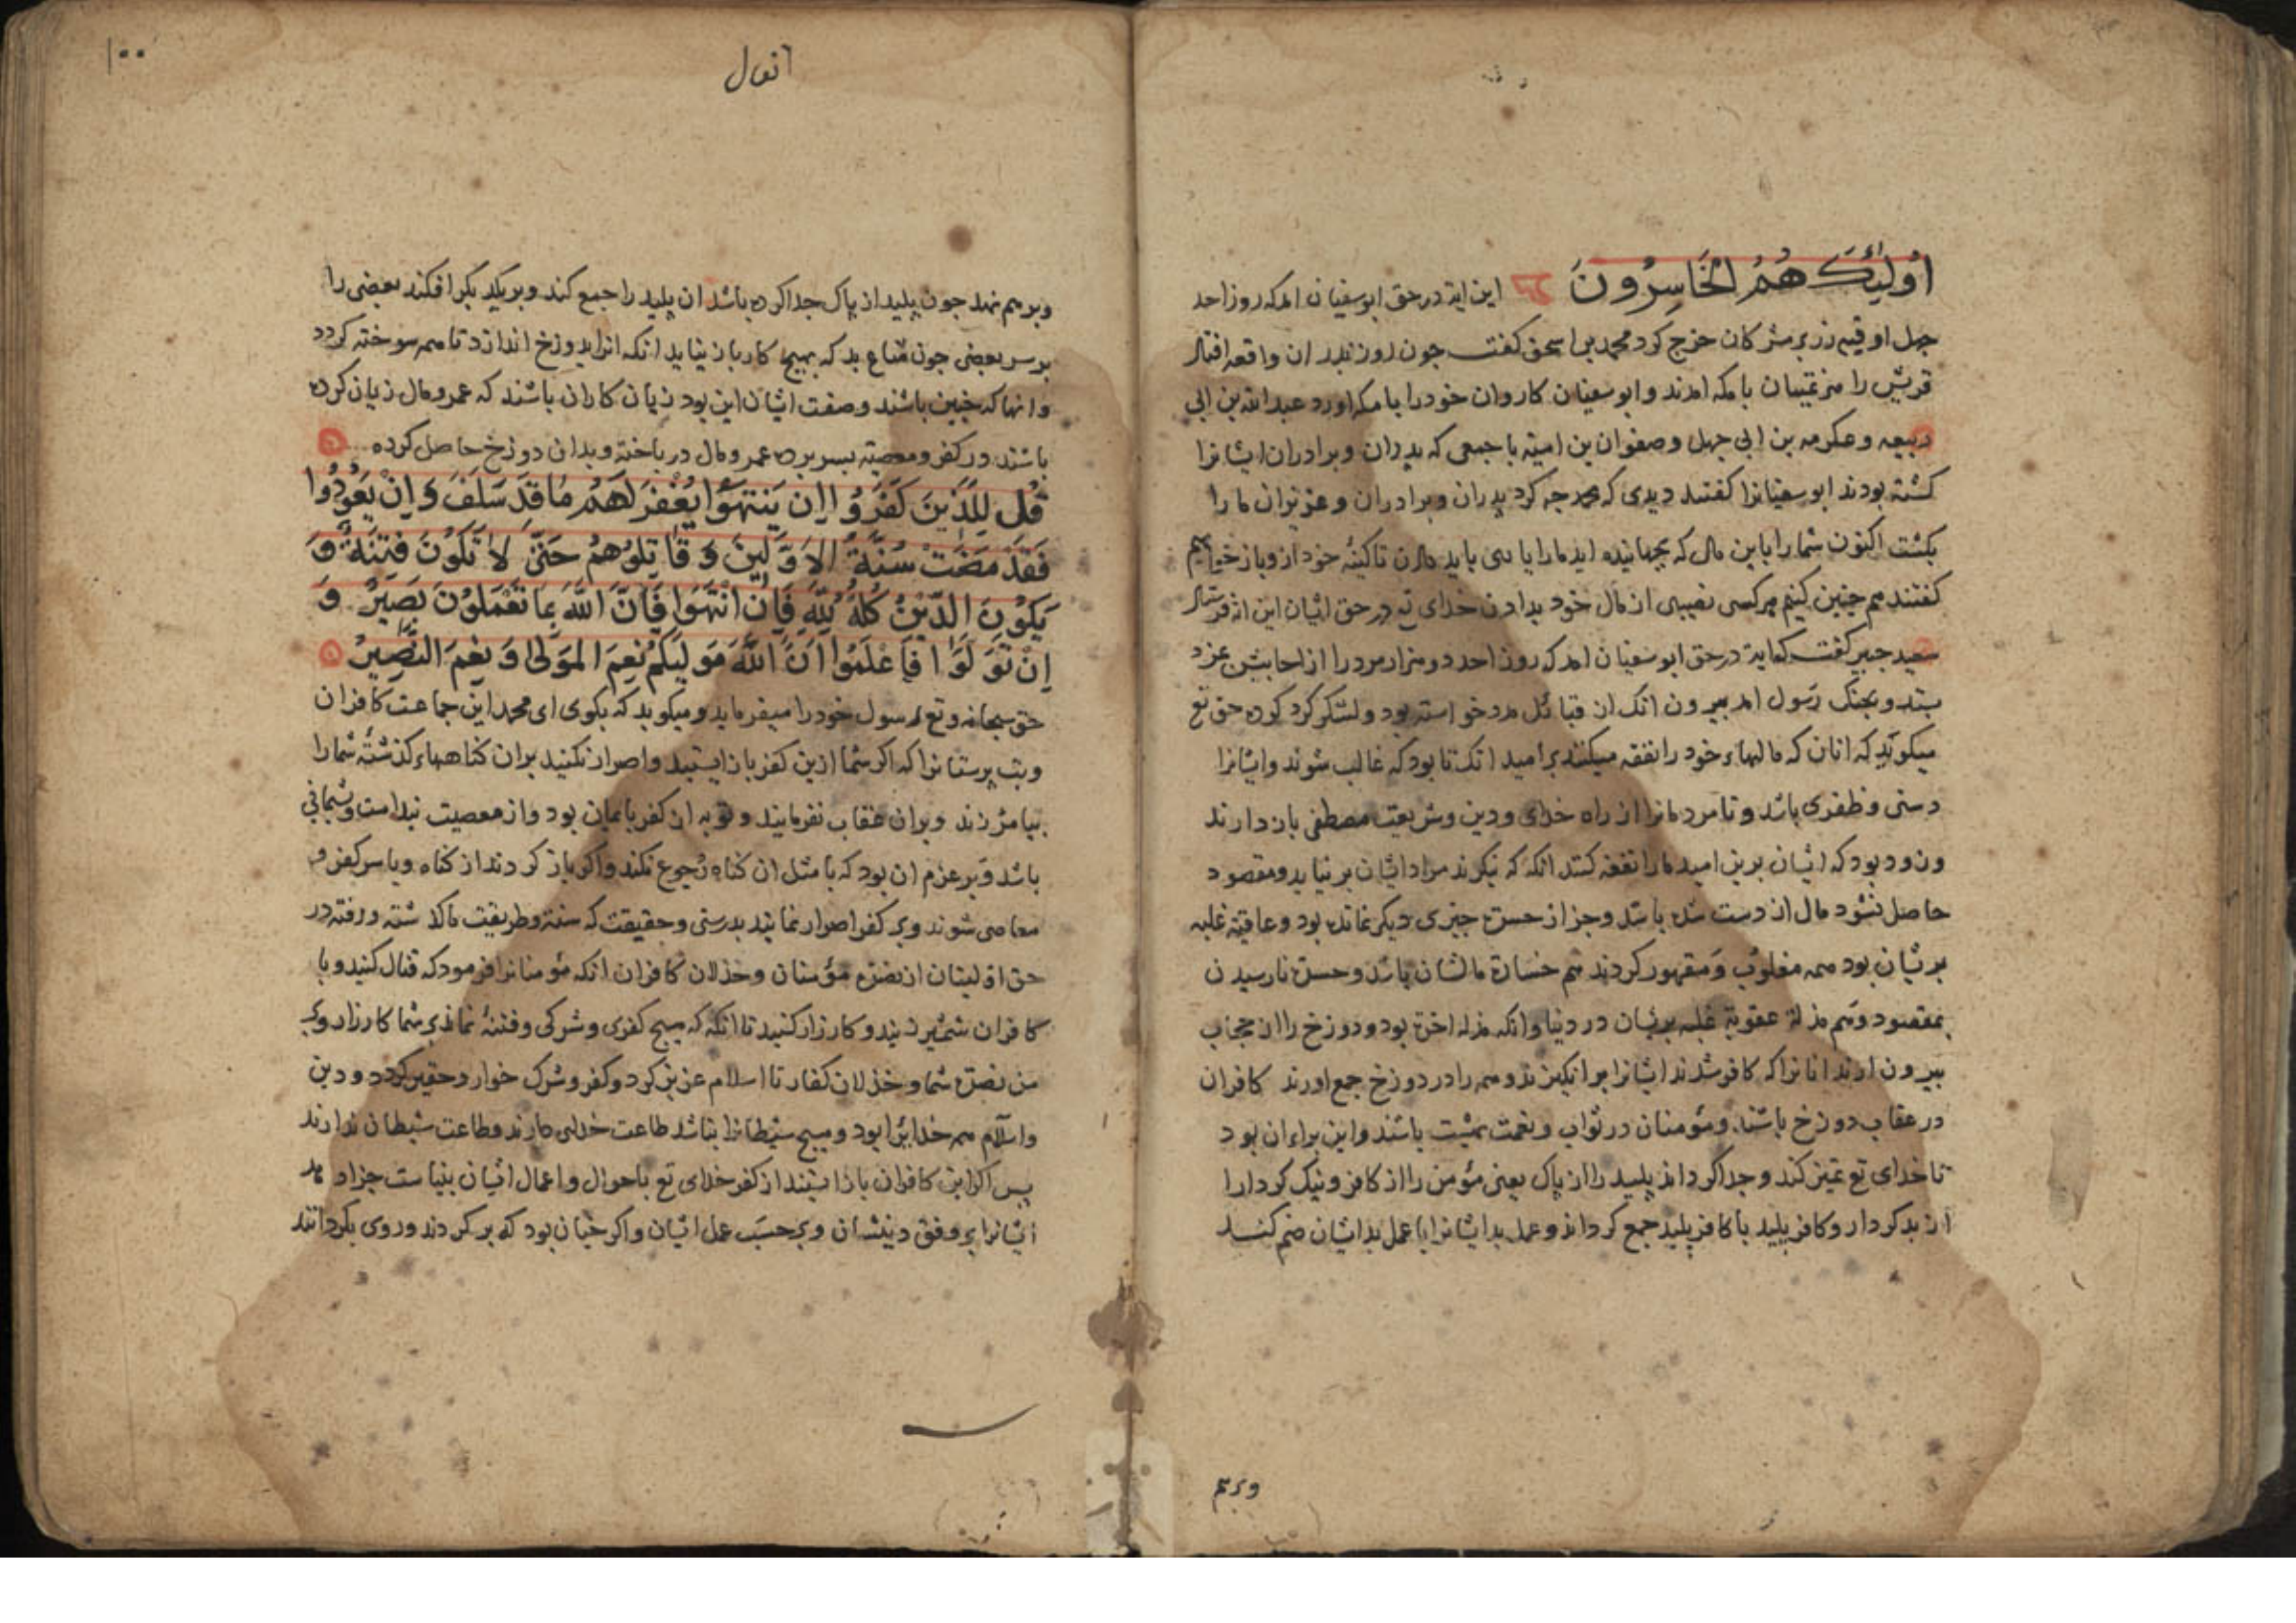 اُولٰئِكَ هُمُ الْخَاسِرُونَ این ایة در حق ابوسفیان امد که روز احد
جهل اوقیه زر بر مشرکان خرج کرد محمد بن اسحق کفت جون روز بدر ان واقعه افتاد
قریش را منهزمان با مکه امدند و ابوسفیان کاروان خود را با مکه اورد عبد الله بن ابی
ربیعه و عکرمه بن ابی جهل و صفوان بن امیته با جمعی که بدران و برادران ایشانرا
کشته بودند ابوسفیانرا کفتند دیدی که محمد جه کرد بدران و برادران و عزیزان ما را
بکشت اکنون شما را باین مال که بجهانیده اید ما را یاری باید دادن تا کینهٔ خود ازو باز خواهیم
کفتند هم جنین کنیم هر کسی نصیبی از مال خود بدادن خدای تع در حق ایشان این ایة فرستاد
سعید جبیر کفت که ایة در حق ابوسفیان امد که روز احد دو هزار مرد را از احابیش بمزد
بستد و بجنک رسول امد بیرون انک از قبائل مدد خواسته بود و لشکر کرد کرده حق تع
میکوید که انان که مالهاء خود را نفقه میکنند بر امید انک تا بود که غالب شوند و ایشانرا
دستی و ظفری باشد و تا مردمانرا از راه خدای و دین و شریعت مصطفی باز دارند
و زود بود که ایشان برین امید مال را نفقه کنند انکه که نیکرند مراد ایشان بر نیاید و مقصود
حاصل نشود مال از دست شده باشد و جز از حسرت جیزی دیکر نمانده بود و عاقبة غلبه
بریشان بود همه مغلوب و مقهور کردند هم خسارة مالشان باشد و حسرت نارسیدن
بمقصود و هم مذلة عقوبة غلبه بریشان در دنیا و انکه مذله اخرة بود و دوزخ را از حجاب
بیرون ارند انانرا که کافر شدند ایشانرا بر انکیزند و همه را در دوزخ جمع اورند کافران
در عقاب دوزخ باشند و مؤمنان در ثواب و نعمت بهشت باشند و این براء ان بود
تا خدای تع تمییز کند و جدا کرداند پلید را از پاک یعنی مؤمن را از کافر و نیک کردار را
از بد کردار و کافر پلید با کافر پلید جمع کرداند و عمل بد ایشانرا با عمل بد ایشان ضم کند
وبرهم
۱۰۰
انفال
و بر هم نهد جون پلید از پاک جدا کرده باشد ان پلید را جمع کند و بر یکدیکر افکند بعضی را
بر سر بعضی جون متاع بد که بهیج کار باز نیاید انکه انرا بدوزخ اندازد تا همه سوخته کردد
و انها که جنین باشند و صفت ایشان این بود زیان کاران باشند که عمر و مال زیان کرده
باشند در کفر و معصیة بسر برده عمر و مال در باخته و بدان دوزخ حاصل کرده
قُل لِلَّذِينَ كَفَرُوا اِن يَنتَهُوا يُغْفَرْ لَهُمْ مَا قَدْ سَلَفَ وَاِنْ يَعُودُوا
فَقَدْ مَضَتْ سُنَّةُ الاَوَّلِينَ وَقَاتِلُوهُمْ حَتَّى لاَ تَكُونَ فِتْنَةٌ وَ
يَكُونَ الدِّينُ كُلُّهُ لِلّٰهِ فَاِنِ انْتَهَوا فَاِنَّ اللّٰهَ بِمَا تَعْمَلُونَ بَصِيرٌ وَ
اِنْ تَوَلَّوْا فَاعْلَمُوا اَنَّ اللّٰهَ مَوْلَيكُمْ نِعْمَ المَوْلَى وَنِعْمَ النَّصِيرُ
حق سبحانه وتع رسول خود را میفرماید و میکوید که بکوی ای محمد این جماعت کافران
و بت پرستانرا که اکر شما ازین کفر باز ایستید و اصرار نکنید بران کناههاء کذشتهٔ شما را
بیامرزند و بران عقاب نفرمایند و توبه از کفر بایمان بود و از معصیت بندامت و پشمانی
باشد و بر عزم ان بود که با مثل ان کناه رجوع نکند و اکر باز کردند از کناه و با سر کفر و
معاصی شوند و بر کفر اصرار نمایند بدرستی و حقیقت که سنة و طریقت ما کذشته و رفته در
حق اولینان از نصرة مؤمنان و خذلان کافران انکه مؤمنانرا فرمود که قتال کنید و با
کافران شمشیر زنید و کارزار کنید تا انکه که هیج کفری و شرکی و فتنهٔ نماند بر شما کارزار و بر
من نصرة شما و خذلان کفار تا اسلام عزیز کردد و کفر و شرک خوار و حقیر کردد و دین
و اسلام همه خدایرا بود و هیج شیطانرا نباشد طاعت خدای دارند و طاعت شیطان ندارند
پس اکر این کافران باز ایستند از کفر خدای تع باحوال و اعمال ایشان بیناست جزا دهد
ایشانرا بر وفق دینشان و بر حسب عمل ایشان و اکر جنان بود که بر کردند و روی بکردانند